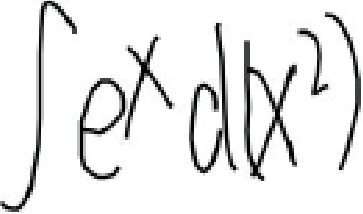 ∫e^x d(x^2)